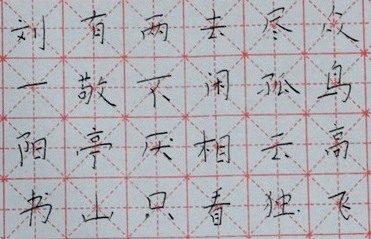 众鸟高飞
尽孤云独
去闲相看
两不厌只
有敬亭山
刘一阳书